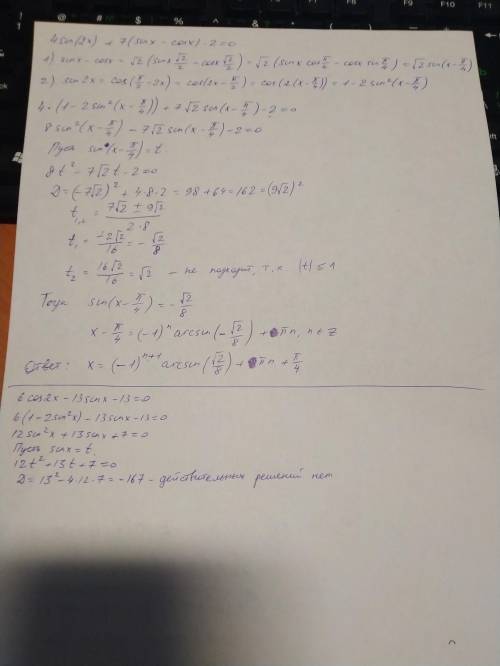 4sin(2x) + 7(sinx - cosx) - 2 = 0
1) sinx - cosx = √2(sinx √2/2 - cosx √2/2) = √2(sinx cos π/4 - cosx sin π/4) = √2 sin(x - π/4)
2) sin2x = cos(π/2 - 2x) = cos(2x - π/2) = cos(2(x - π/4)) = 1 - 2sin²(x - π/4)
4·(1 - 2sin²(x - π/4)) + 7√2 sin(x - π/4) - 2 = 0
8sin²(x - π/4) - 7√2 sin(x - π/4) - 2 = 0
Пусть sin(x - π/4) = t.
8t² - 7√2t - 2 = 0
D = (-7√2)² + 4·8·2 = 98 + 64 = 162 = (9√2)²
t₁,₂ = (7√2 ± 9√2)/(2·8)
t₁ = -2√2/16 = -√2/8
t₂ = 16√2/16 = √2 - не подходит, т.к |t| ≤ 1
Тогда sin(x - π/4) = -√2/8
x - π/4 = (-1)ⁿ arcsin(-√2/8) + πn, n ∈ Z
Ответ: x = (-1)ⁿ⁺¹ arcsin(√2/8) + πn + π/4
6cos2x - 13sinx - 13 = 0
6(1 - 2sin²x) - 13sinx - 13 = 0
12sin²x + 13sinx + 7 = 0
Пусть sinx = t.
12t² + 13t + 7 = 0
D = 13² - 4·12·7 = -167 - действительных решений нет